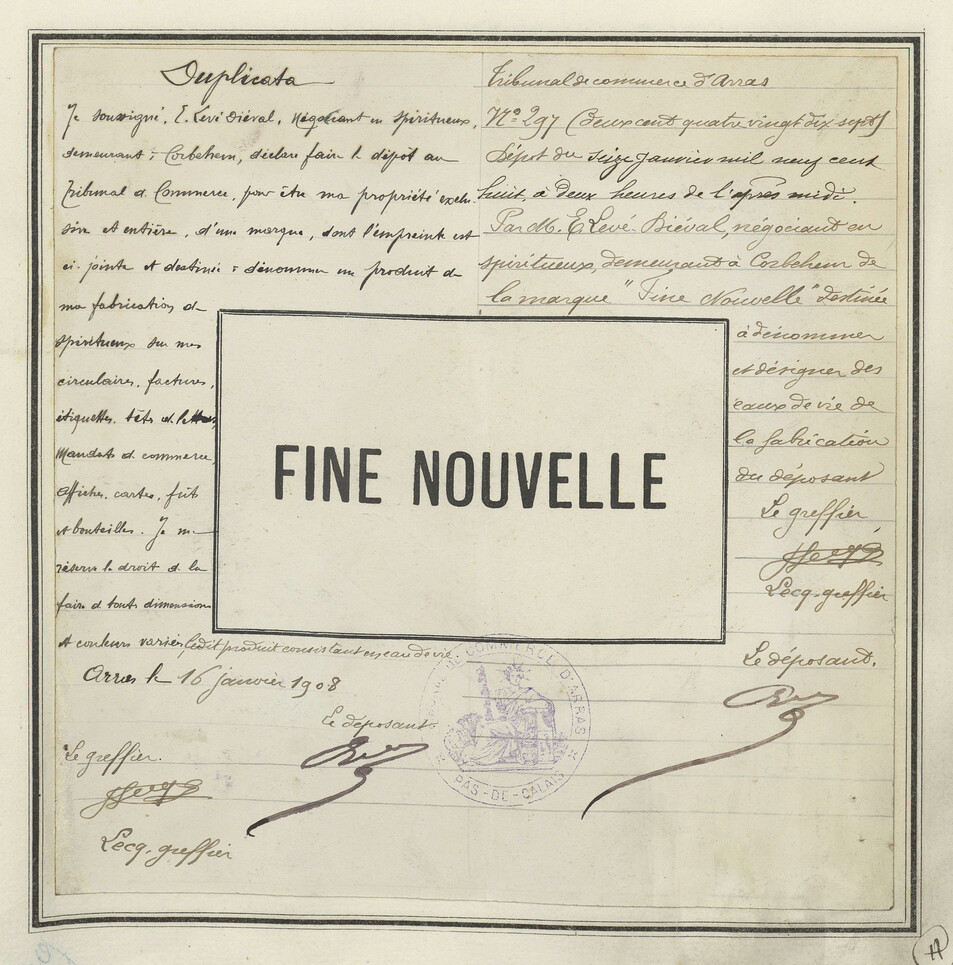 Duplicata
Je soussigné, E. Levé Diéval, Négociant en Spiritueux,
demeurant à Corbehem, déclare faire le dépôt au
Tribunal de Commerce, pour être ma propriété exclu-
sive et entière, d'une marque, dont l'empreinte est
ci-jointe et destinée à dénommer un produit de
ma fabrication de
spiritueux sur mes
circulaires, factures,
étiquettes, têtes de lettres
Mandats de commerce,
affiches, cartes, fûts
et bouteilles. Je me
réserve le droit de la
faire de toutes dimensions
et couleurs variées, ledit produit consistant en eau de vie.
Arras le 16 janvier 1908
Le déposant
Le greffier.
Lecq. greffier
FINE NOUVELLE
Tribunal de commerce d'Arras
N° 297 (deux cent quatre vingt dix sept)
Dépôt du seize janvier mil neuf cent
huit, à deux heures de l'après midi.
Par M. E. Levé-Diéval, négociant en
spiritueux, demeurant à Corbehem de
la marque "Fine Nouvelle" destinée
à dénommer
et désigner des
eaux de vie de
la fabrication
du déposant
Le greffier
Lecq. greffier
Le déposant.
DE COMMERCE D'ARRAS
PAS-DE-CALAIS